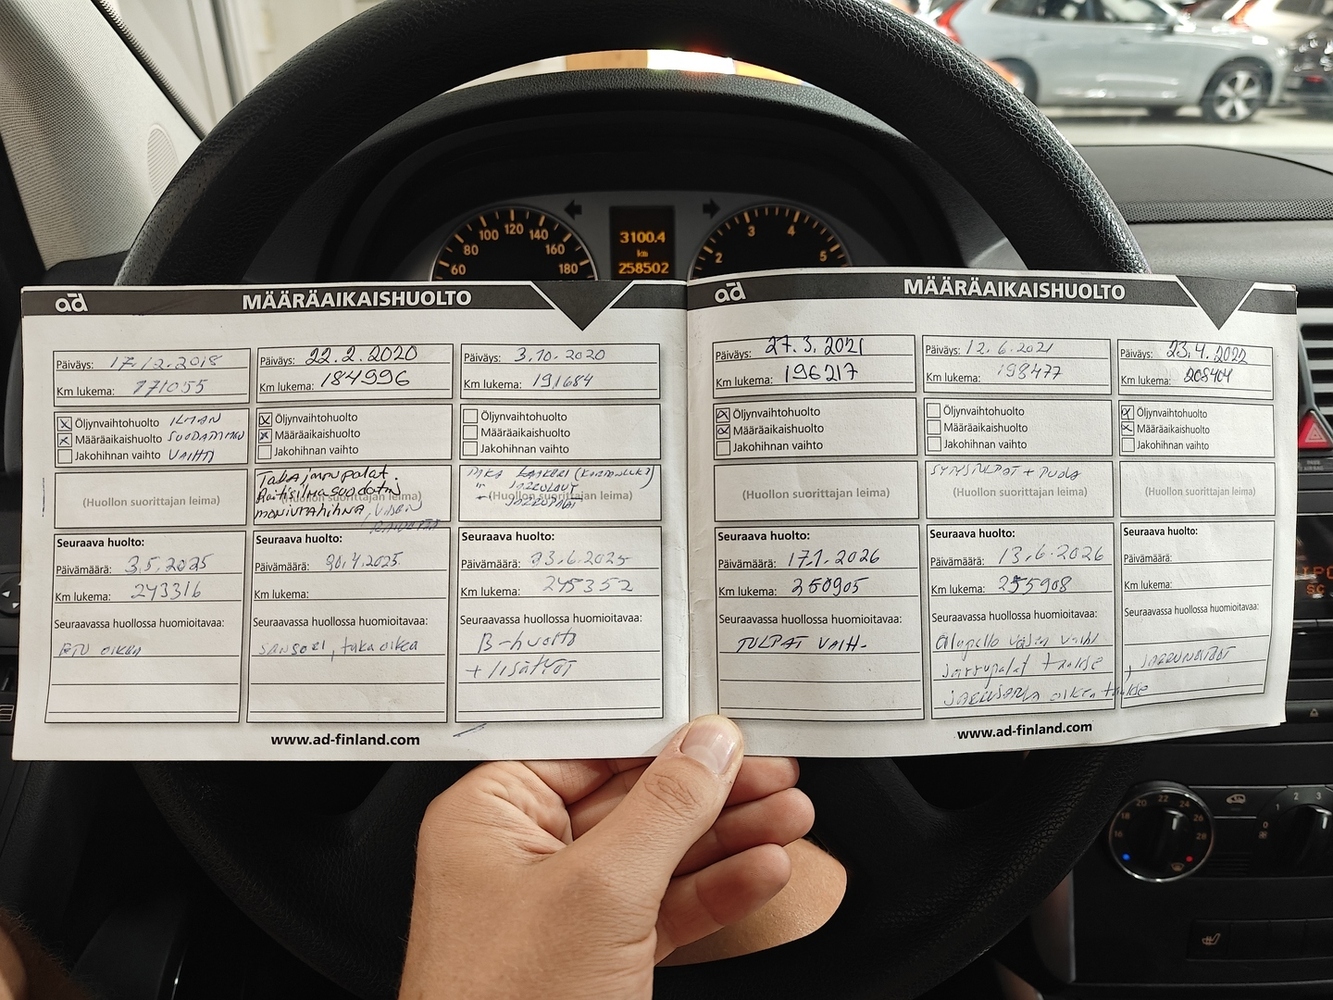 100 120 140
80 160
60 180
3100.4
km
258502
3 4
2 5
ad MÄÄRÄAIKAISHUOLTO
Päiväys: 17.12.2018
Km lukema: 171055
Öljynvaihtohuolto ILMAN
Määräaikaishuolto SUODATTIMEN
Jakohihnan vaihto VAIHTO
(Huollon suorittajan leima)
Seuraava huolto:
Päivämäärä: 3.5.2025
Km lukema: 243316
Seuraavassa huollossa huomioitavaa:
oikea
Päiväys: 22.2.2020
Km lukema: 184996
Öljynvaihtohuolto
Määräaikaishuolto
Jakohihnan vaihto
Takajarrupalat
Raitisilmasuodatin
moniurahihna,
(Huollon suorittajan leima)
Seuraava huolto:
Päivämäärä: 30.4.2025
Km lukema:
Seuraavassa huollossa huomioitavaa:
, taka oikea
Päiväys: 3.10.2020
Km lukema: 191684
Öljynvaihtohuolto
Määräaikaishuolto
Jakohihnan vaihto
TAKA
" JARRULEVYT
JARRUPALAT
(Huollon suorittajan leima)
Seuraava huolto:
Päivämäärä: 23.6.2025
Km lukema: 245352
Seuraavassa huollossa huomioitavaa:
B-huolto
+ lisätyöt
www.ad-finland.com
ad MÄÄRÄAIKAISHUOLTO
Päiväys: 27.3.2021
Km lukema: 196217
Öljynvaihtohuolto
Määräaikaishuolto
Jakohihnan vaihto
(Huollon suorittajan leima)
Seuraava huolto:
Päivämäärä: 17.1.2026
Km lukema: 250905
Seuraavassa huollossa huomioitavaa:
TULPAT VAIH.
Päiväys: 12.6.2021
Km lukema: 198477
Öljynvaihtohuolto
Määräaikaishuolto
Jakohihnan vaihto
SYTYSTULPAT + PUOLA
(Huollon suorittajan leima)
Seuraava huolto:
Päivämäärä: 13.6.2026
Km lukema: 255908
Seuraavassa huollossa huomioitavaa:
vasen vaiht
jarrupalat taakse
oikea taakse
Päiväys: 23.4.2022
Km lukema: 208404
Öljynvaihtohuolto
Määräaikaishuolto
Jakohihnan vaihto
(Huollon suorittajan leima)
Seuraava huolto:
Päivämäärä:
Km lukema:
Seuraavassa huollossa huomioitavaa:
+
www.ad-finland.com
20 22 24
18 26
16 28
1 2 3
0